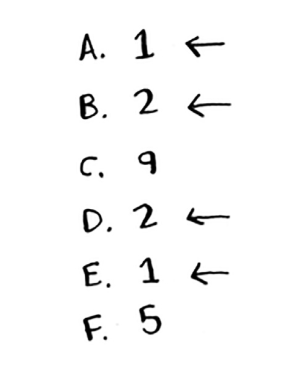 A. 1 ←
B. 2 ←
C. 9
D. 2 ←
E. 1 ←
F. 5